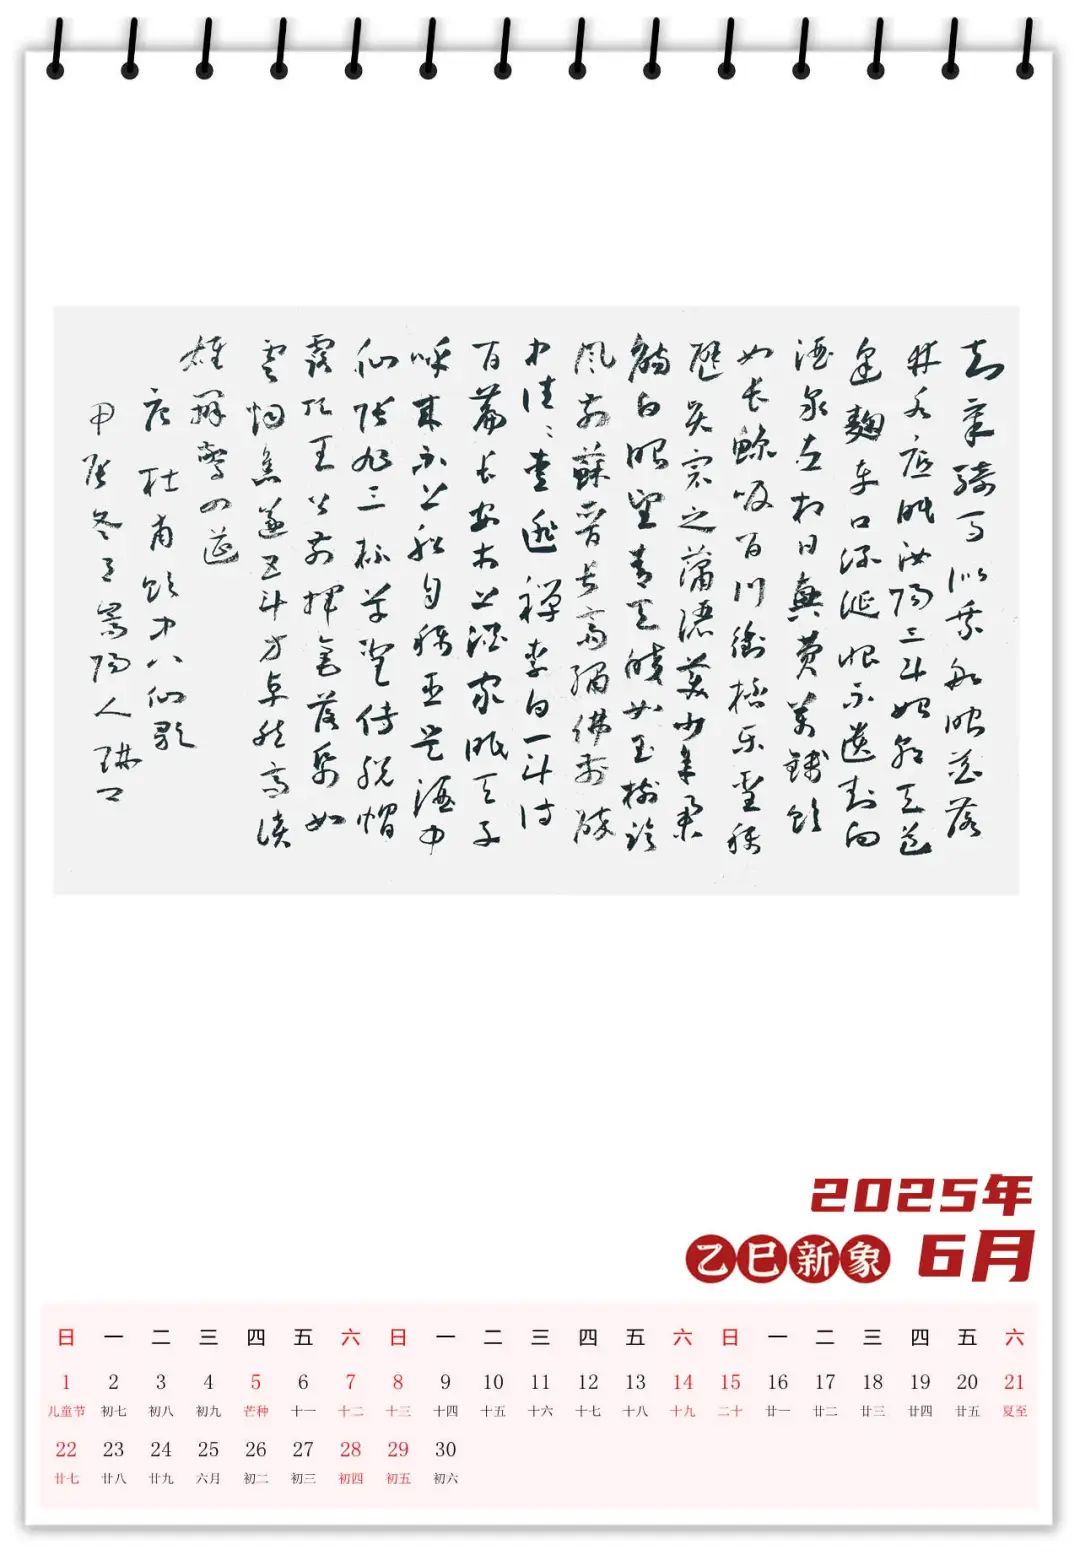 知章騎馬似乘船眼花落
井水底眠汝陽三斗始朝天道
逢麴車口流涎恨不遺封向
酒泉左相日興費萬錢飲
如長鯨吸百川銜杯樂聖稱
避賢宗之瀟灑美少年舉
觴白眼望青天皎如玉樹臨
風前蘇晉長齋繡佛前醉
中往往愛逃禪李白一斗詩
百篇長安市上酒家眠天子
呼來不上船自稱臣是酒中
仙張旭三杯草聖傳脫帽
露頂王公前揮毫落紙如
雲煙焦遂五斗方卓然高談
雄辯驚四筵
唐杜甫飲中八仙歌
甲辰冬月嵩陽人
2025年
乙巳新象 6月
日 一 二 三 四 五 六 日 一 二 三 四 五 六 日 一 二 三 四 五 六
1 2 3 4 5 6 7 8 9 10 11 12 13 14 15 16 17 18 19 20 21
儿童节 初七 初八 初九 芒种 十一 十二 十三 十四 十五 十六 十七 十八 十九 二十 廿一 廿二 廿三 廿四 廿五 夏至
22 23 24 25 26 27 28 29 30
廿七 廿八 廿九 六月 初二 初三 初四 初五 初六